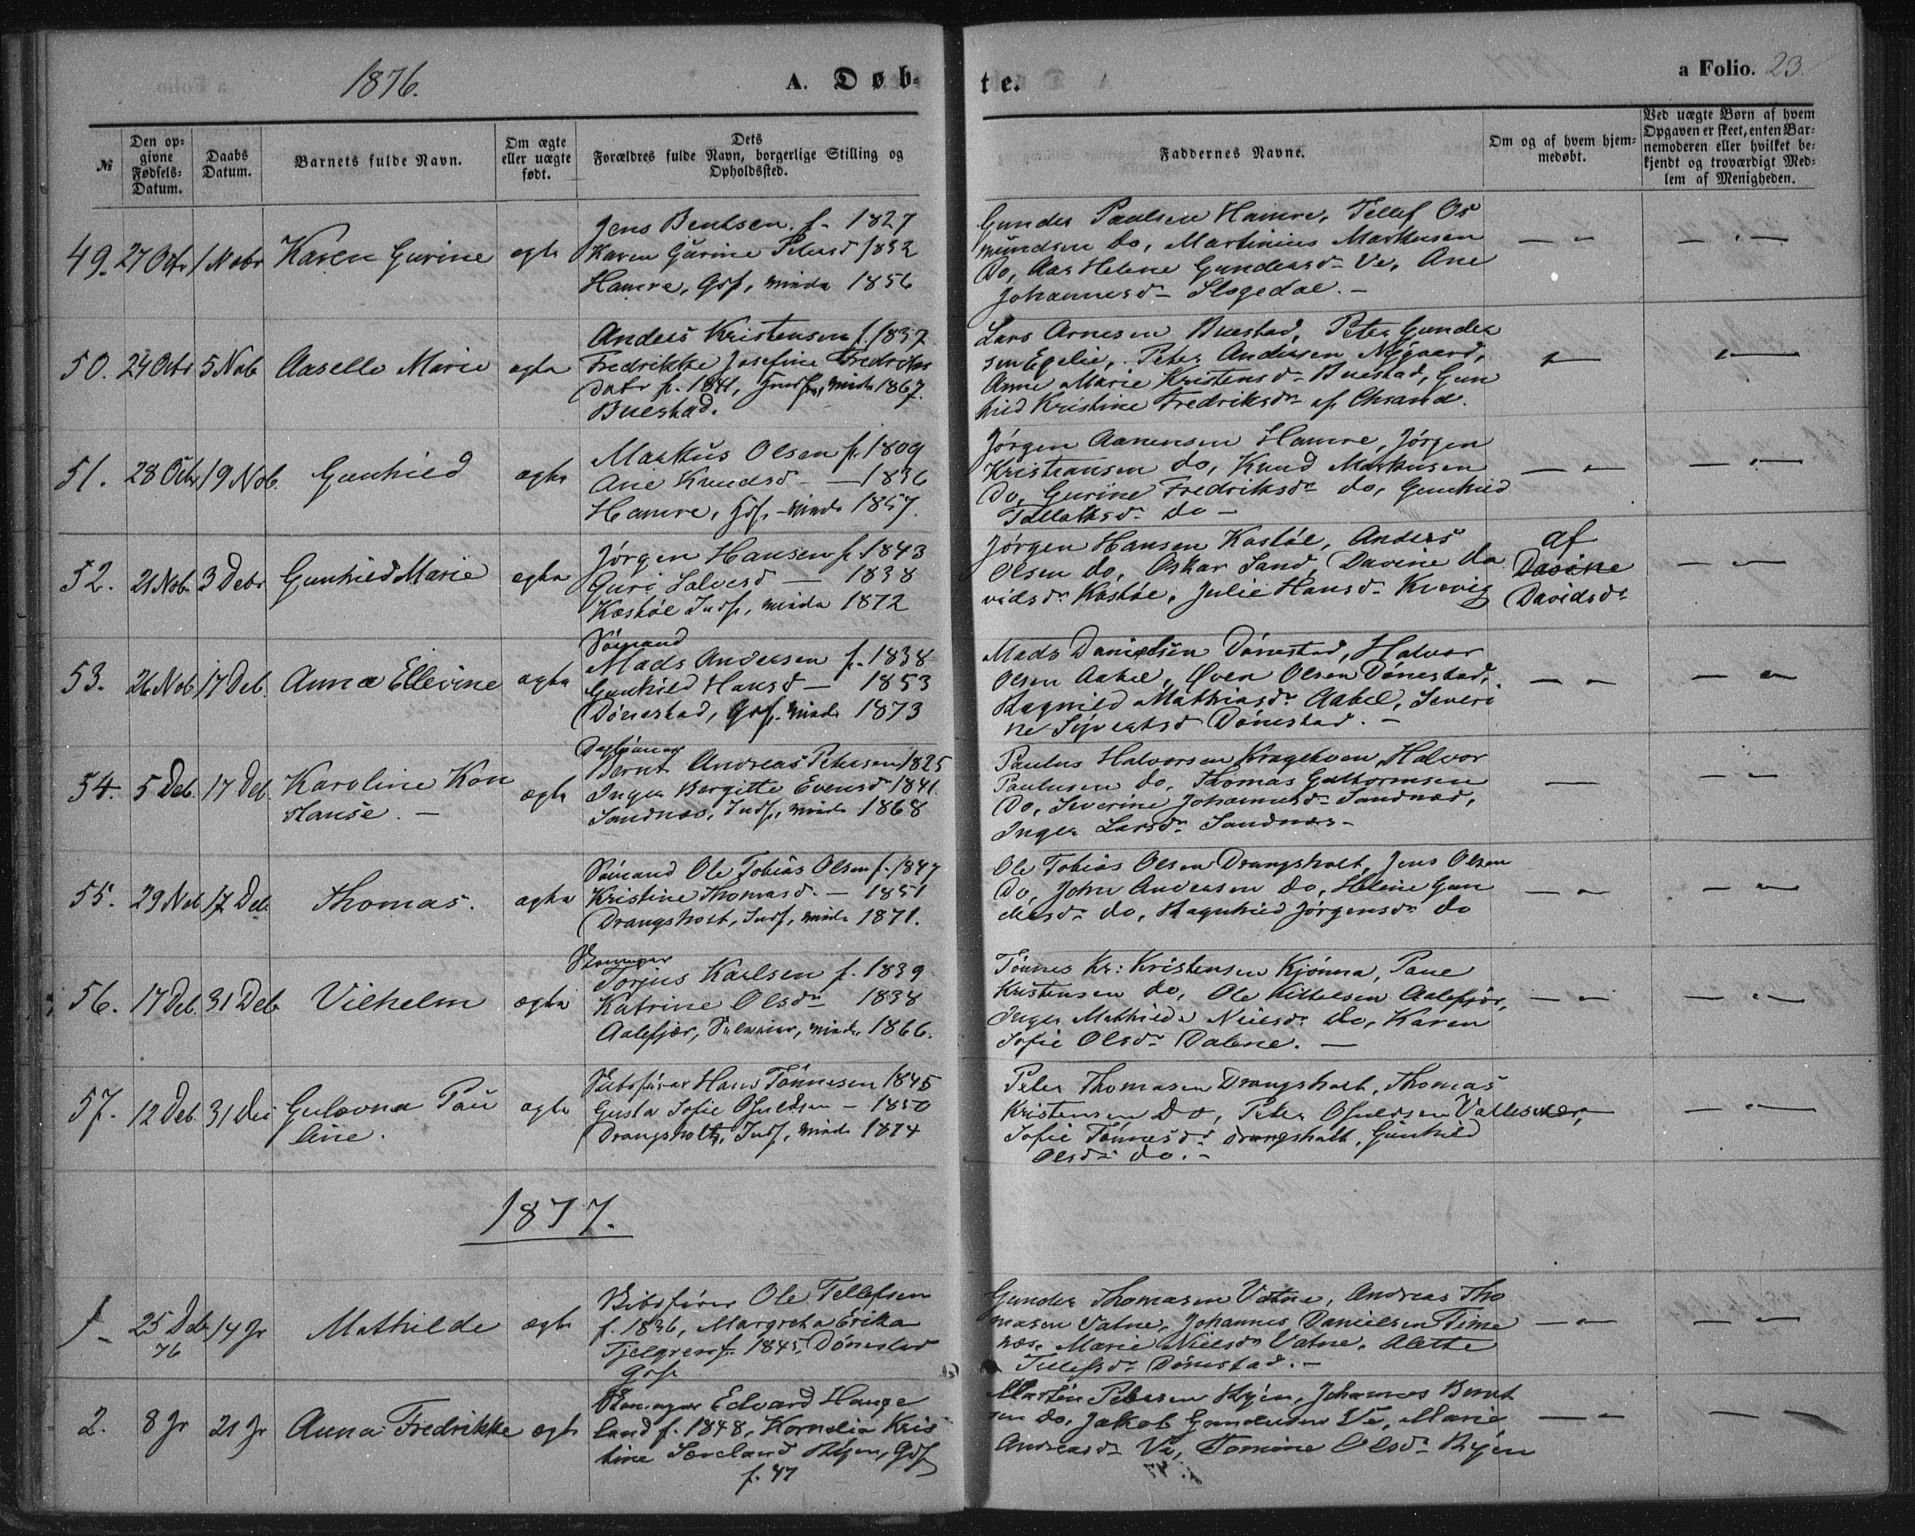 1876.
A. Døb-
te.
a Folio. 23.
№
Den op-
givne
Fødsels-
Datum.
Daabs
Datum.
Barnets fulde Navn.
Om ægte
eller uægte
født.
Dets
Forældres fulde Navn, borgerlige Stilling og
Opholdssted.
Faddernes Navne.
Om og af hvem hjem-
medøbt.
Ved uægte Børn af hvem
Opgaven er skeet, enten Bar-
nemoderen eller hvilket be-
kjendt og troværdigt Med-
lem af Menigheden.
49. 27 Octr 1 Nobr Karen Gurine ægte
Jens Bentsen f. 1827
Karen Gurine Petersd 1832
Hamre, Gdf, minda 1856
Gunder Paulsen Hamre, Tellef Os
mundsen do, Martinius Markusen
do, Aas Helene Gundersd Ve, Ane
Johannesd Slogedal. —
50. 24 Octr 5 Nob Aaselle Marie ægte
Anders Kristensen f. 1837
Fredrikke Josefine Fredriks
datr f. 1841, minde 1867.
Buestad.
Lars Arnesen Buestad, Peter Gunder
sen Egelie, Peter Andersen Nygaard,
Anne Marie Kristensd Buestad, Gun
hild Kristine Fredriksdr af Chrsand.
51. 28 Octr 19 Nob. Gunhild ægte
Markus Olsen f. 1809
Ane Knudsd — 1836
Hamre, Gdf, minde 1857.
Jørgen Aanensen Hamre, Jørgen
Kristiansen do, Knud Markusen
do, Gurine Fredriksdr do, Gunhild
Tallaksdr do —
52. 21 Nob. 3 Debr Gunhild Marie ægte
Jørgen Hansen f. 1843
Guri Salvesd — 1838
Kostøl Indf, minda 1872
Jørgen Hansen Kostøl, Anders
Olsen do, Oskar Sand, Davine Da
vidsdr Kostøl, Julie Hansd Kvevig
af
Davine
Davidsdr
53. 26 Nob 17 Deb. Anna Ellevine ægte
Sømand
Mads Andersen f. 1838
Gunhild Hansd — 1853
Dønestad, Gdf. minde 1873
Mads Danielsen Dønestad, Halvor
Olsen Aabel, Øven Olsen Dønestad,
Ragnild Mathiasdr Aabel, Severi
ne Syvertsd Dønestad. —
54. 5 Deb. 17 Deb. Karoline Kon
stanse. — ægte
Bernt Andreas Petersen 1825
Inger Bergitte Evensd 1841.
Sandnæs, Indf, minde 1868
Paulus Halvorsen Krageboen, Halvor
Paulusen do, Thomas Guttormsen
do, Severine Johannesd Sandnæs,
Inger Larsdr Sandnæs —
55. 29 Nob 17 Deb Thomas. ægte
Sømand Ole Tobias Olsen f. 1847
Kristine Thomasd — 1851
Drangsholt, Indf, minde 1871.
Ole Tobias Olsen Drangsholt, Jens Olsen
do, John Andersen do, Helene Gun
dersdr do, Ragnhild Jørgensdr do
56. 17 Deb. 31 Deb Vilhelm ægte
Torjus Karlsen f. 1839
Katrine Olsdr 1838
Aalefjær, minde 1866.
Tønnes Kr: Kristensen Kjønna, Paul
Kristensen do, Ole Kittelsen Aalefjær,
Inger Mathilde Nielsdr do, Karen
Sofie Olsdr Dalene. —
57. 12 Deb. 31 Deb Gulovna Pau
line. ægte
Hans Tønnesen 1845
Gusta Sofie Ofuldsen — 1850
Drangsholt, Indf, minde 1874
Peter Thomasen Drangsholt, Thomas
Kristensen do, Peter Ofuldsen Vallesvær,
Sofie Tønnesdr Drangsholt, Gunhild
Olsdr do. —
1877.
1 25 Deb 76 14 Jr Mathilde ægte
Ole Tellefsen
f. 1836, Margretha Erika
Fjelgren f. 1845, Dønestad
Gdf
Gunder Thomasen Vatne, Andreas Tho
masen Vatne, Johannes Danielsen Time
næs. Marie Nielsdr Vatne, Alette
Tellefsdr Dønestad. —
2. 8 Jr 21 Jr Anna Fredrikke ægte
Edvard Hauge
land f. 1848, Kornelia Kris
tine Soreland Ryen, Gdf
f. 47
Martin Petersen Ryen, Johannes Bernt
sen do, Jakob Gundersen Ve, Marie
Andreasdr Ve, Tomine Olsdr Ryen